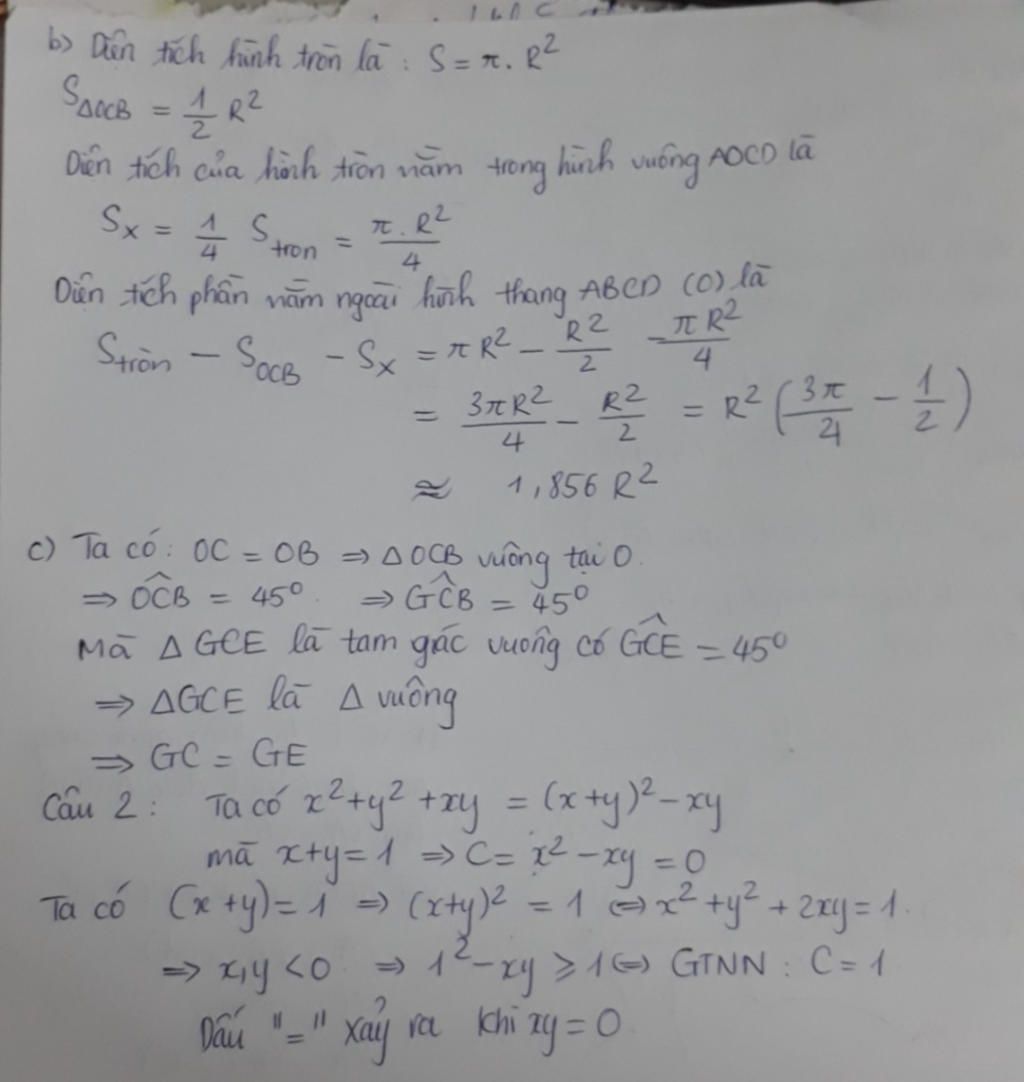 b) Diện tích hình tròn là : S = π. R²
S△OCB = 1/2 R²
Diện tích của hình tròn nằm trong hình vuông AOCD là
Sx = 1/4 Stron = π. R²/4
Diện tích phần nằm ngoài hình thang ABCD (O) là
Stròn − SOCB − Sx = πR² − R²/2 − πR²/4
= 3πR²/4 − R²/2 = R² (3π/4 − 1/2)
≈ 1,856 R²
c) Ta có: OC = OB ⇒ △OCB vuông tại O.
⇒ OCB̂ = 45° . ⇒ GCB̂ = 45°
Mà △GCE là tam giác vuông có GCÊ = 45°
⇒ △GCE là △ vuông
⇒ GC = GE
Câu 2 : Ta có x² + y² + xy = (x+y)² − xy
mà x+y = 1 ⇒ C = x² − xy = 0
Ta có (x+y) = 1 ⇒ (x+y)² = 1 ⇔ x² + y² + 2xy = 1.
⇒ x,y < 0 ⇒ 1² − xy ⩾ 1 ⇔ GTNN : C = 1
Dấu "=" xảy ra khi xy = 0